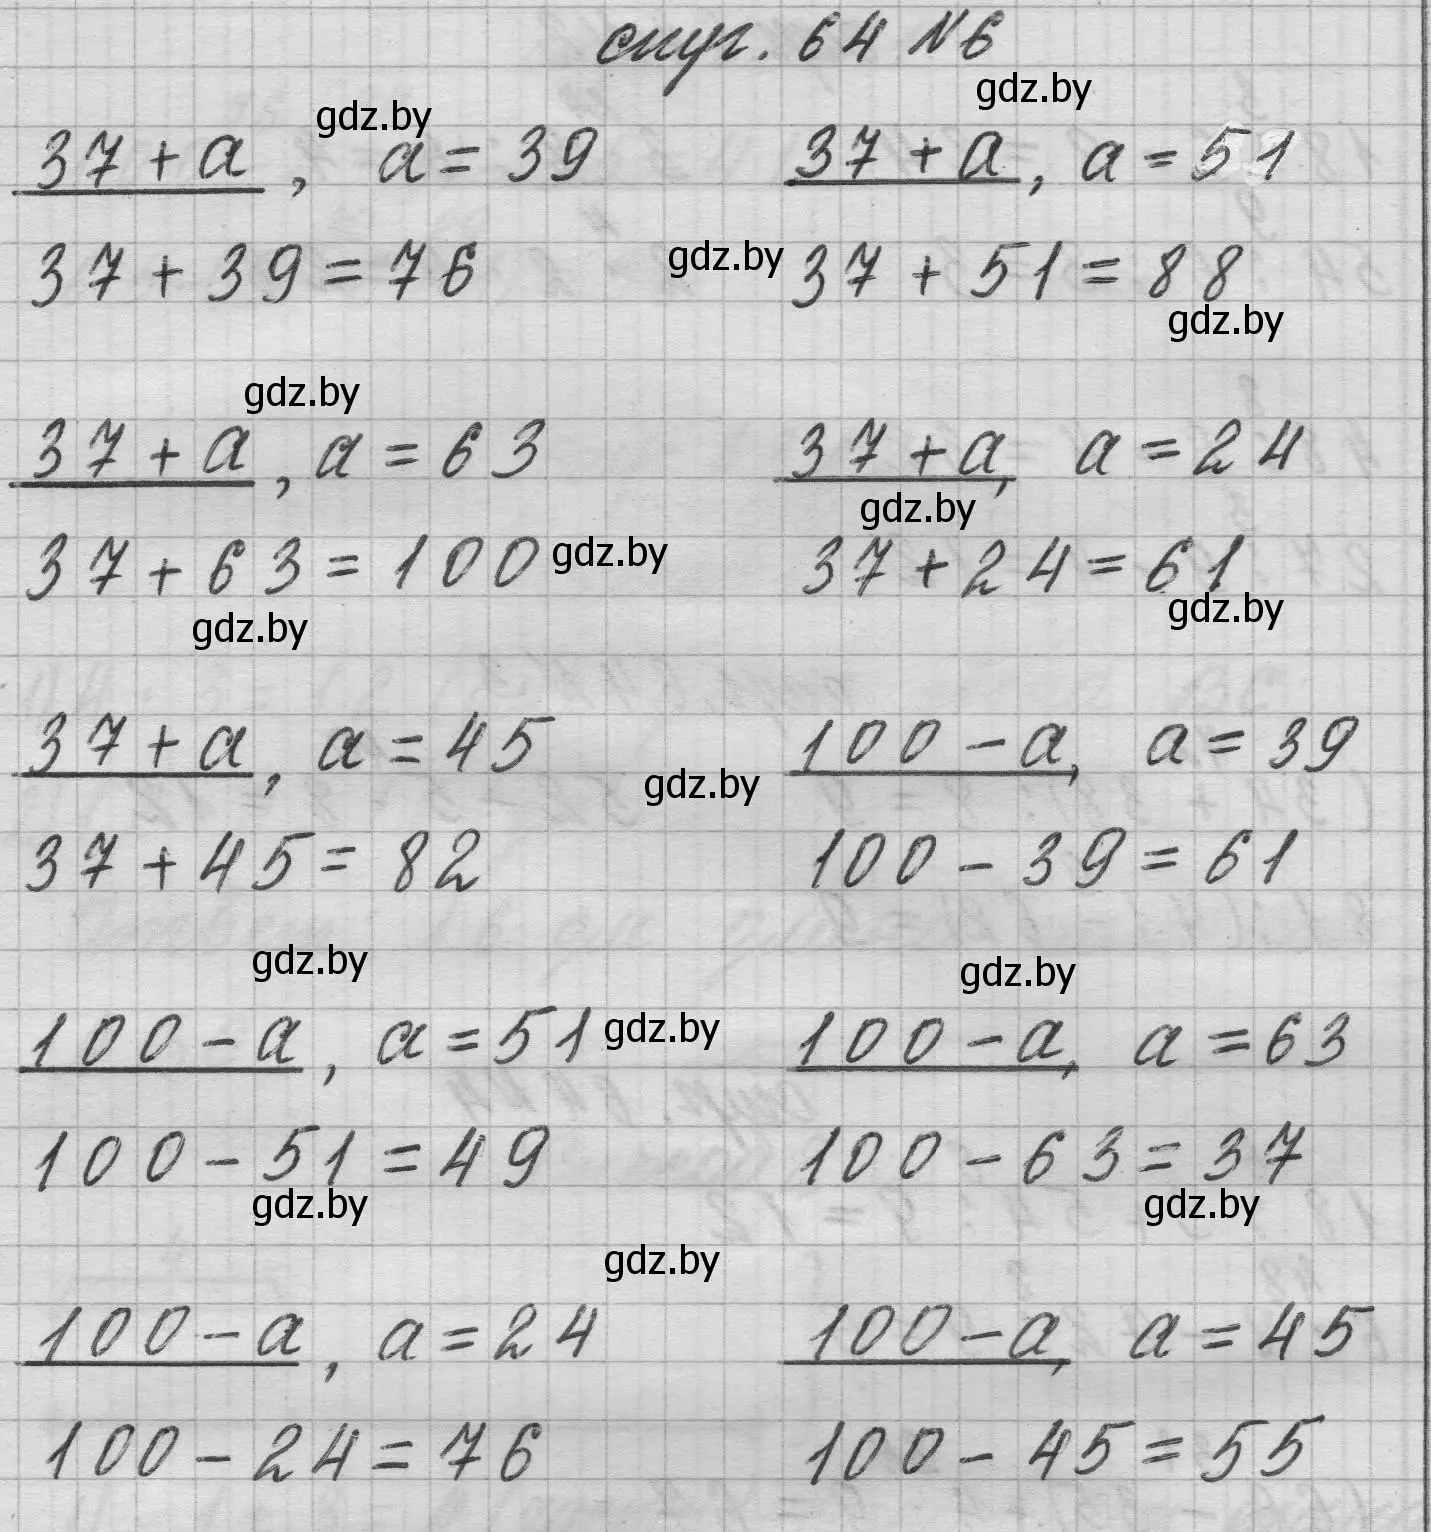 стр. 64 №6
gdz.by
gdz.by
37 + a, a = 39 37 + a, a = 51
37 + 39 = 76 gdz.by 37 + 51 = 88
gdz.by
gdz.by
37 + a, a = 63 37 + a, a = 24
gdz.by
37 + 63 = 100 gdz.by 37 + 24 = 61
gdz.by gdz.by
37 + a, a = 45 100 - a, a = 39
gdz.by
37 + 45 = 82 100 - 39 = 61
gdz.by gdz.by
100 - a, a = 51 gdz.by 100 - a, a = 63
100 - 51 = 49 100 - 63 = 37
gdz.by gdz.by
gdz.by
100 - a, a = 24 100 - a, a = 45
100 - 24 = 76 100 - 45 = 55